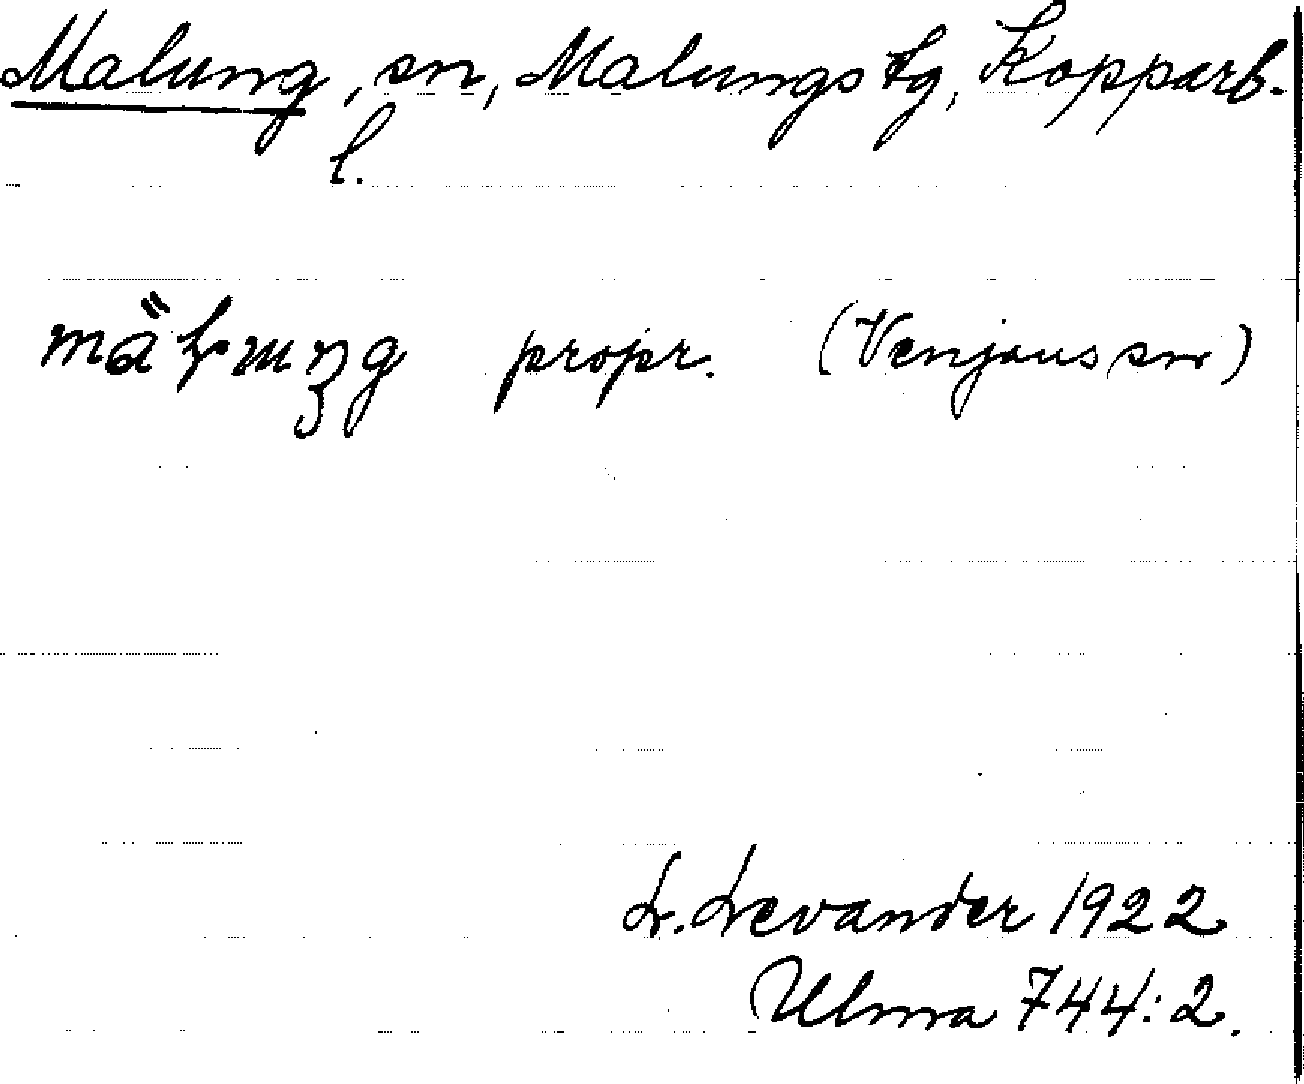 Malung, sn, Malungs tg, Kopparb.
l.
propr. (Venjans sn)
L. Levander 1922
Ulma 744:2.